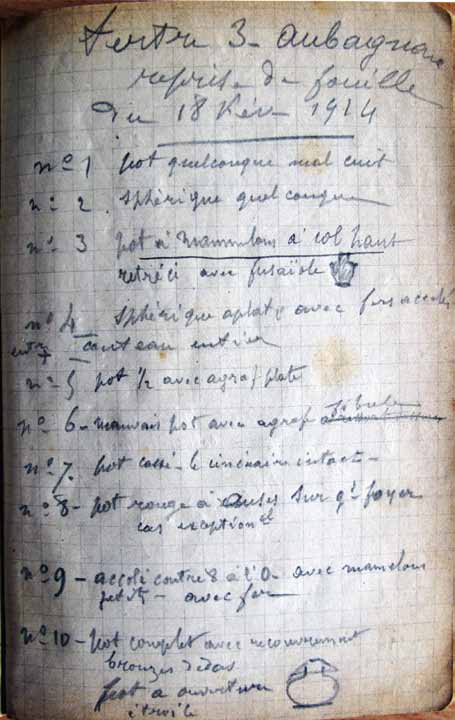 Tertre 3 - Aubagnan
reprise de fouille
du 18 Fév. 1914
n° 1 pot quelconque mal cuit
n° 2 sphérique quelconque
n° 3 pot à mamelons à col haut
rétréci avec fusaïole
n° 4 sphérique aplati avec fers accolés
couteau entier
n° 5 pot 1/2 avec agraf plate
n° 6 - mauvais pot avec agraf fibule
n° 7. pot cassé - le cinéraire intact -
n° 8 - pot rouge à anses sur gd foyer
cas exceptionel
n° 9 - accolé contre 8 à l'O - avec mamelons
petits - avec fer
n° 10 - pot complet avec recouvrement
bronzes dedans
pot a ouverture
étroite